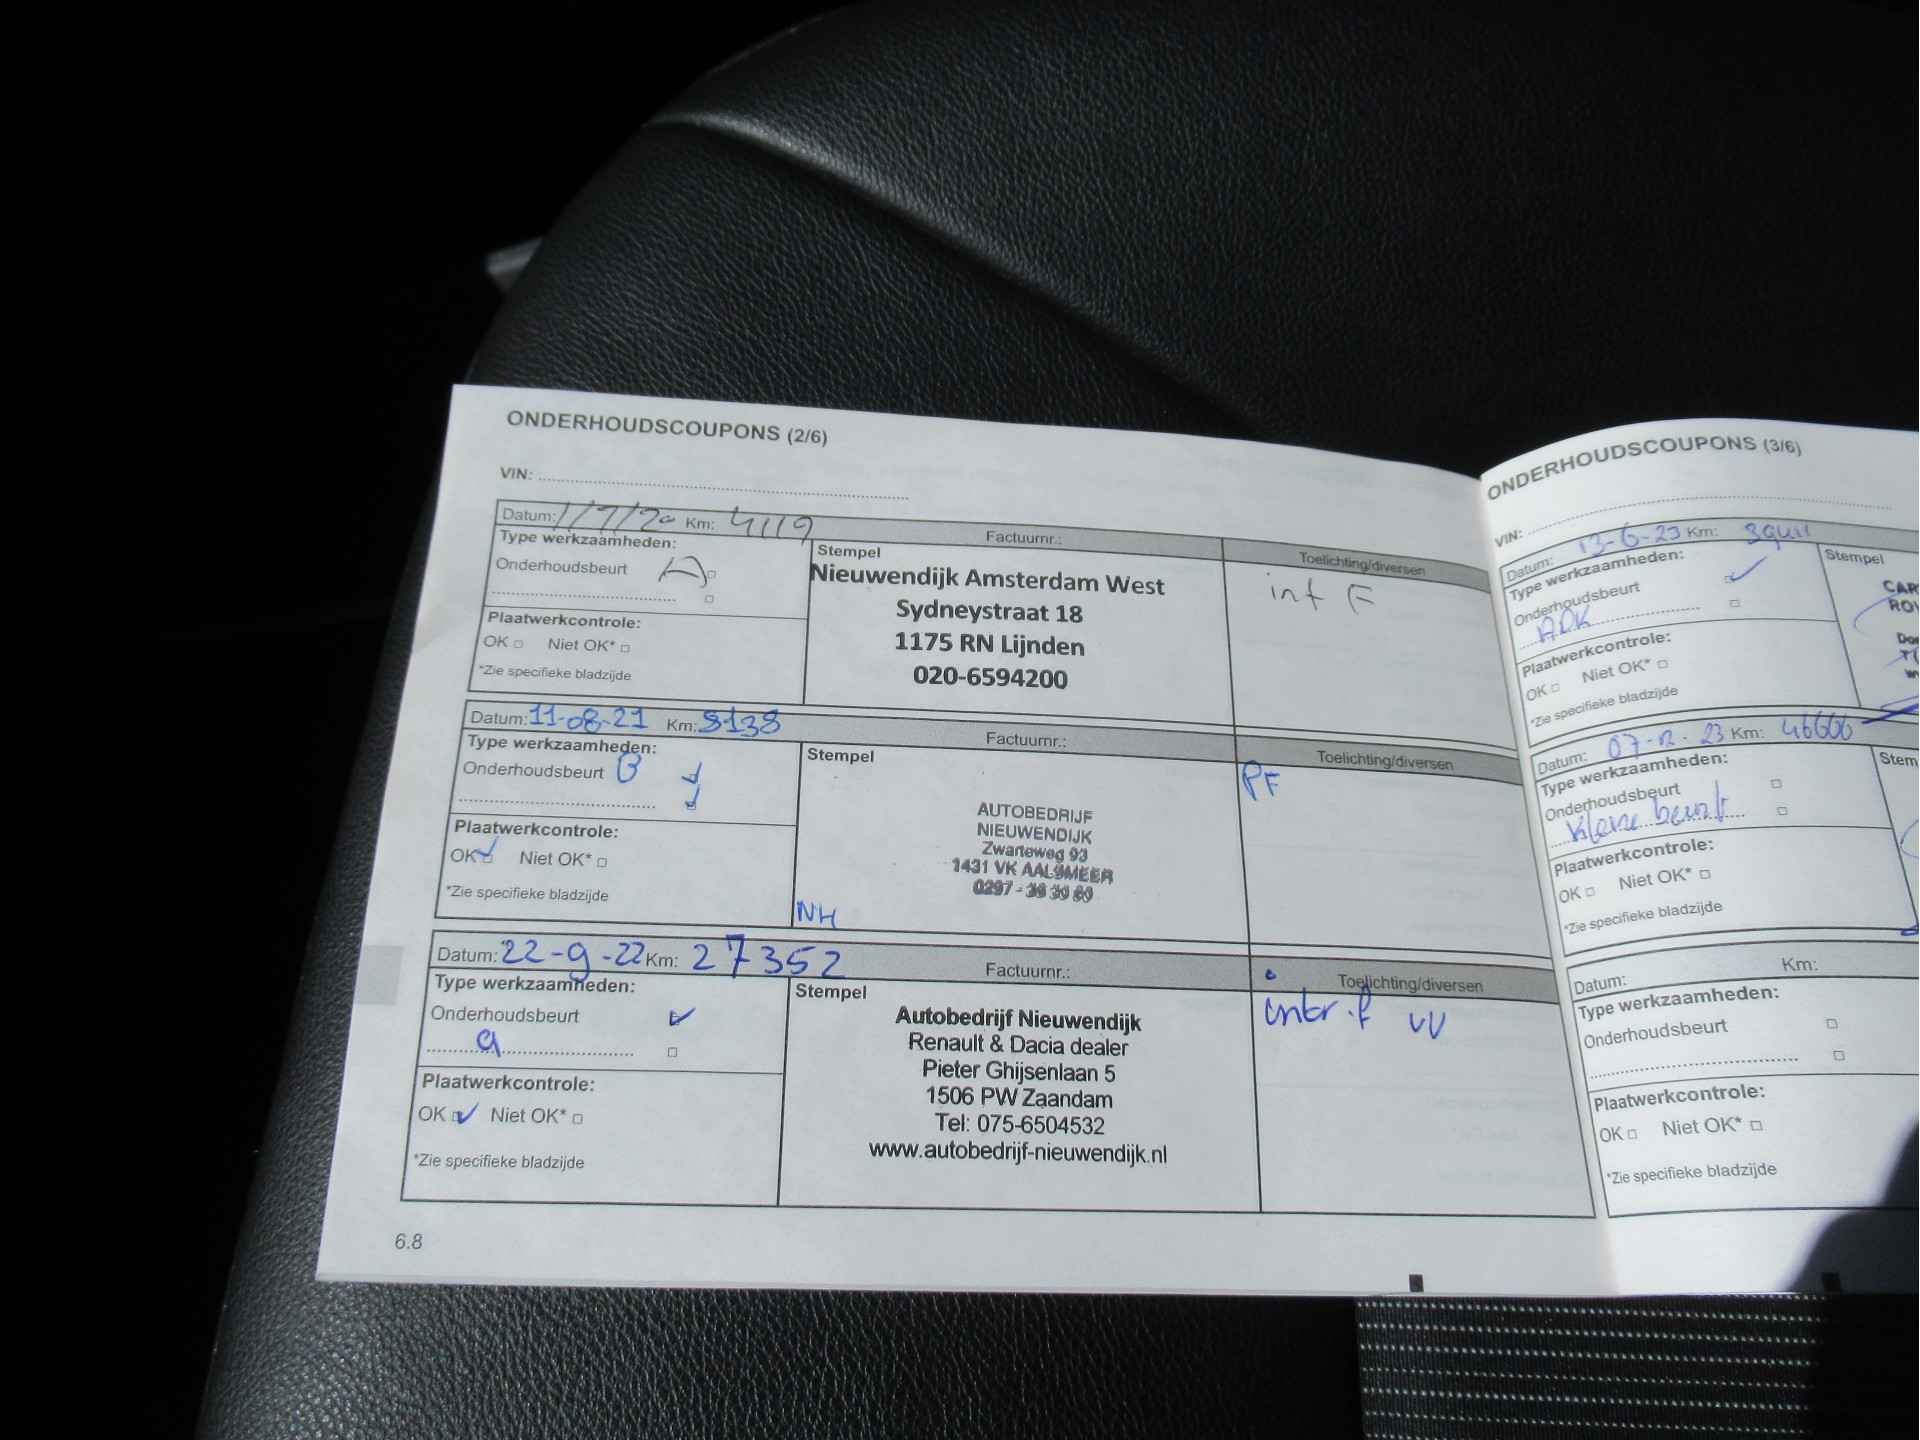 ONDERHOUDSCOUPONS (2/6)
VIN:
Datum: 1/7/20 Km: 4119 Factuurnr.: Toelichting/diversen
Type werkzaamheden:
Onderhoudsbeurt A
Plaatwerkcontrole:
OK Niet OK*
*Zie specifieke bladzijde
Stempel
Nieuwendijk Amsterdam West
Sydneystraat 18
1175 RN Lijnden
020-6594200
int F
Datum: 11-08-21 Km: 8138 Factuurnr.: Toelichting/diversen
Type werkzaamheden:
Onderhoudsbeurt B
Plaatwerkcontrole:
OK Niet OK*
*Zie specifieke bladzijde
Stempel
AUTOBEDRIJF
NIEUWENDIJK
Zwarteweg 93
1431 VK AALSMEER
0297 -
NH
PF
Datum: 22-9-22 Km: 27352 Factuurnr.: Toelichting/diversen
Type werkzaamheden:
Onderhoudsbeurt
a
Plaatwerkcontrole:
OK Niet OK*
*Zie specifieke bladzijde
Stempel
Autobedrijf Nieuwendijk
Renault & Dacia dealer
Pieter Ghijsenlaan 5
1506 PW Zaandam
Tel: 075-6504532
www.autobedrijf-nieuwendijk.nl
6.8
ONDERHOUDSCOUPONS (3/6)
VIN:
Datum: 13-6-23 Km:
Type werkzaamheden:
Onderhoudsbeurt
Plaatwerkcontrole:
OK Niet OK*
*Zie specifieke bladzijde
Stempel
Datum: 07-12-23 Km: 46606
Type werkzaamheden:
Onderhoudsbeurt
kleine beurt
Plaatwerkcontrole:
OK Niet OK*
*Zie specifieke bladzijde
Stem
Datum: Km:
Type werkzaamheden:
Onderhoudsbeurt
Plaatwerkcontrole:
OK Niet OK*
*Zie specifieke bladzijde